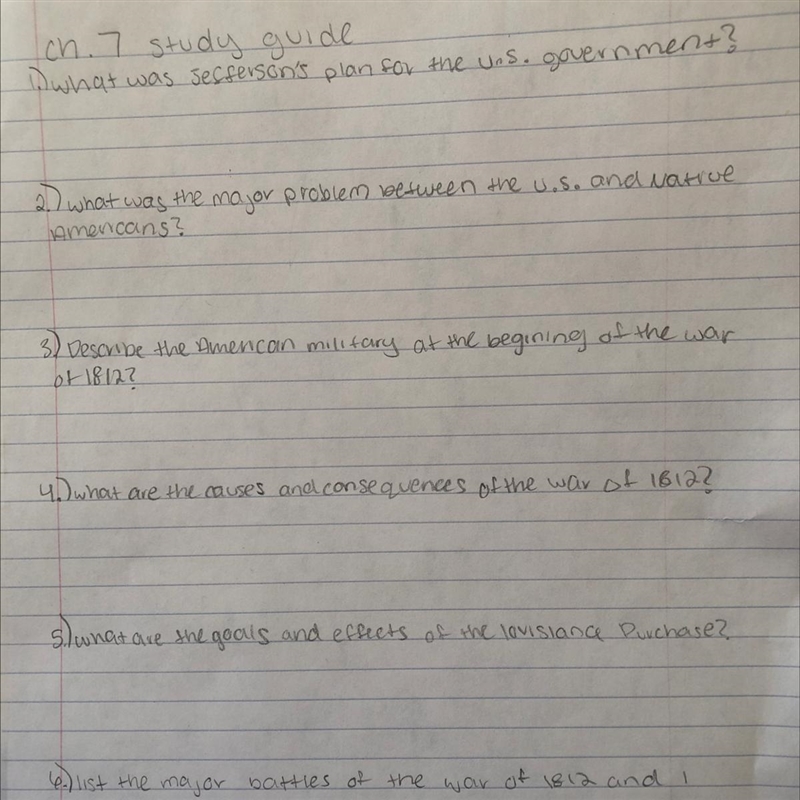 Ch. 7 study guide
1.) what was Jefferson's plan for the U.S. government?
2.) what was the major problem between the U.S. and Native
Americans?
3.) Describe the American military at the begining of the war
of 1812?
4.) what are the causes and consequences of the war of 1812?
5.) what are the goals and effects of the lovisiance Purchase?
6.) list the major battles of the war of 1812 and